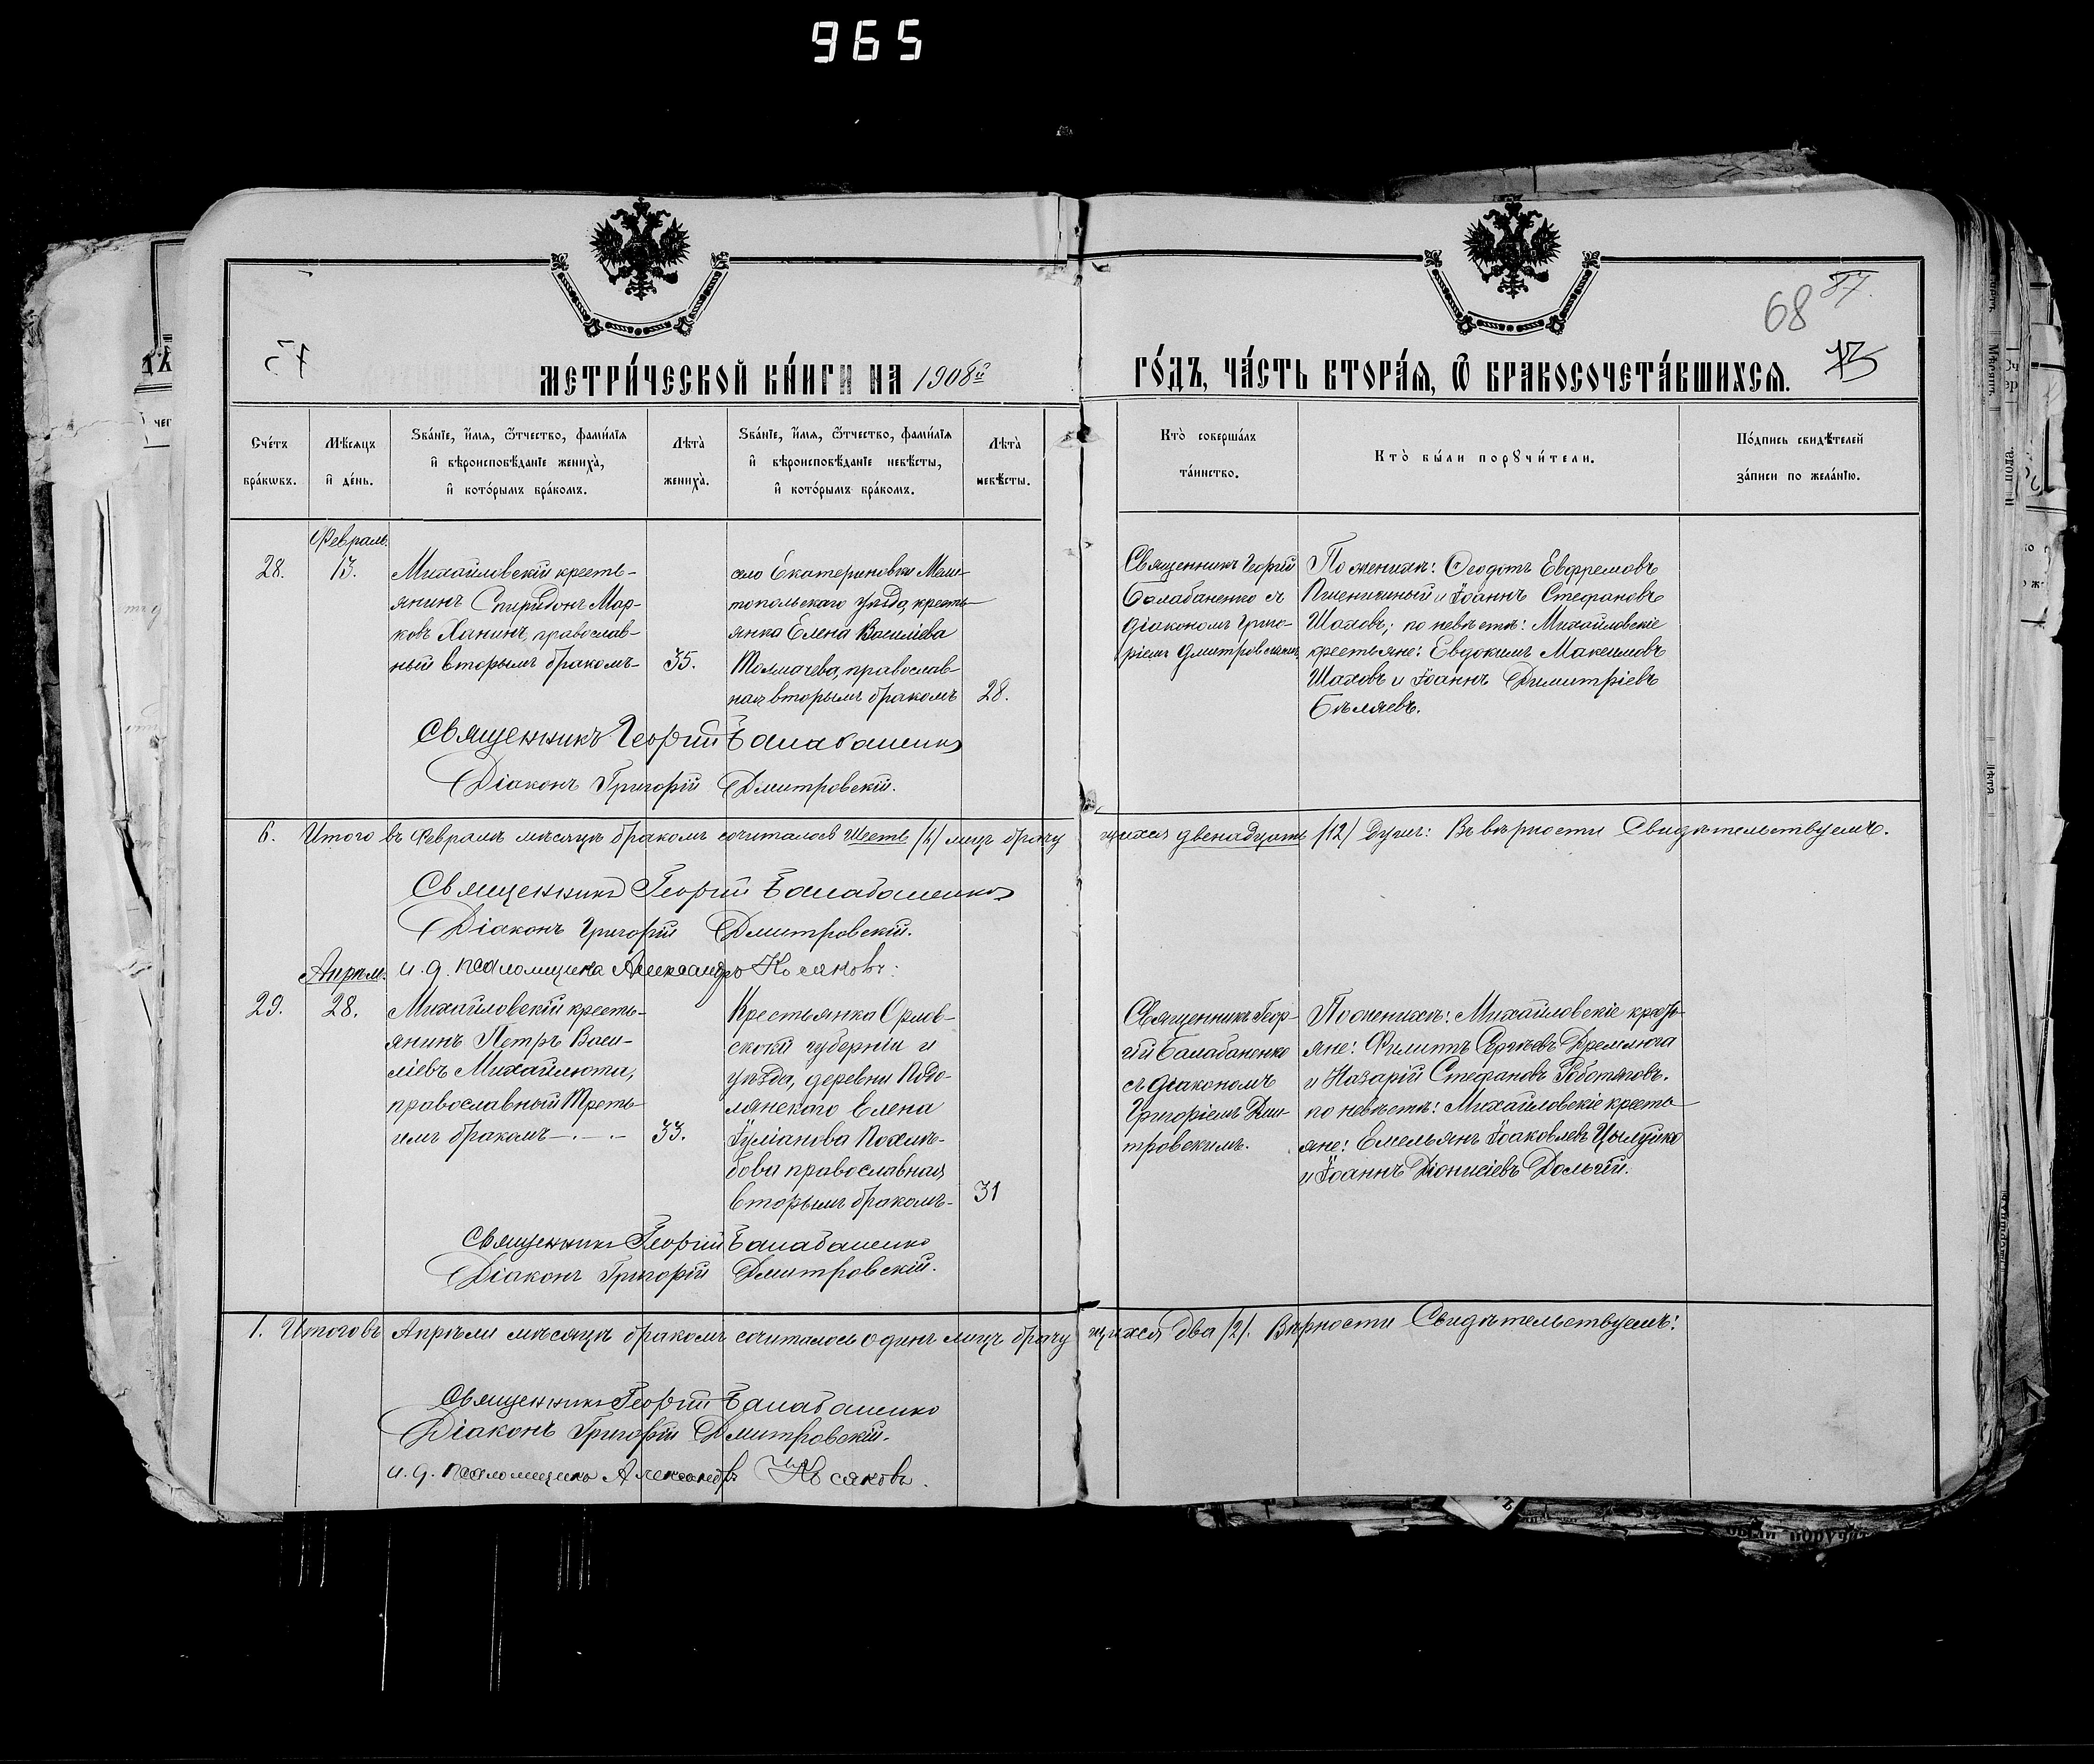 965
68 87.
75
МЕТРИ́ЧЕСКОЙ КНИ́ГИ НА 1908й
ГО́ДЪ, ЧА́СТЬ ВТОРА́Я, Ѿ БРАКОСОЧЕТА́ВШИХСЯ.
Сче́тъ бра́кωвъ.
Мѣ́сяцъ и҆ де́нь.
Ѕва́нїе, и҆́мя, ѻ҆́тчество, фами́лїя
и҆ вѣроисповѣ́данїе жениха̀,
и҆ кото́рымъ бра́комъ.
Лѣта̀ жениха̀.
Ѕва́нїе, и҆́мя, ѻ҆́тчество, фами́лїя
и҆ вѣроисповѣ́данїе невѣ́сты,
и҆ кото́рымъ бра́комъ.
Лѣта̀ невѣ́сты.
Кто̀ соверша́лъ
та́инство.
Кто̀ бы́ли порꙋчи́тели.
По́дпись свидѣ́телей
за́писи по жела́нїю.
Февраль.
28.
13.
Михайловскій кресть-
янинъ Спиридонъ Мар-
ковъ Ханинъ, православ-
ный вторымъ бракомъ-
35.
село Екатериновки Мели-
топольскаго уѣзда, кресть-
янка Елена Василіева
Толмачева, православ-
ная вторымъ бракомъ
28.
Священникъ Георгій
Балабаненко съ
діакономъ Григо-
ріемъ Дмитровскимъ
По женихѣ: Ѳеодотъ Евфремовъ
Пшеничный и Іоаннъ Стефановъ
Шаховъ; по невѣстѣ: Михайловскіе
крестьяне: Евдокимъ Максимовъ
Шаховъ и Іоаннъ Димитріевъ
Бѣляевъ.
Священникъ Георгій Балабаненко
Діаконъ Григорій Дмитровскій.
6. Итого въ Февралѣ мѣсяцѣ бракомъ сочиталось шесть /6/ лицъ брачу щихся двенадцать /12/ душъ: Въ вѣрности Свидѣтельствуемъ.
Священникъ Георгій Балабаненко
Діаконъ Григорій Дмитровскій.
и. д. псаломщика Александръ Косяковъ:
Апрѣль.
29.
28.
Михайловскій кресть-
янинъ Петръ Васи-
ліевъ Михайлюта,
православный Треть-
имъ бракомъ-.-.-
33.
Крестьянка Орлов-
ской губерніи и
уѣзда, деревни Подо-
лянскаго Елена
Іуліанова
православная
вторымъ бракомъ-
31
Священникъ Геор-
гій Балабаненко
съ діакономъ
Григоріемъ Дми-
тровскимъ.
По женихѣ: Михайловскіе кресть-
яне: Филиппъ Сергѣевъ Дремлюга
и Назарій Стефановъ
по невѣстѣ: Михайловскіе кресть-
яне: Емельянъ Іоаковлевъ Цылуйко
и Іоаннъ Діонисіевъ Долгій.
Священникъ Георгій Балабаненко
Діаконъ Григорій Дмитровскій.
1. Итого въ Апрѣли мѣсяцѣ бракомъ сочиталось одинъ лицъ брачу щихся два /2/. Вѣрности Свидѣтельствуемъ:
Священникъ Георгій Балабаненко
Діаконъ Григорій Дмитровскій.
и. д. псаломщика Александръ Косяковъ.